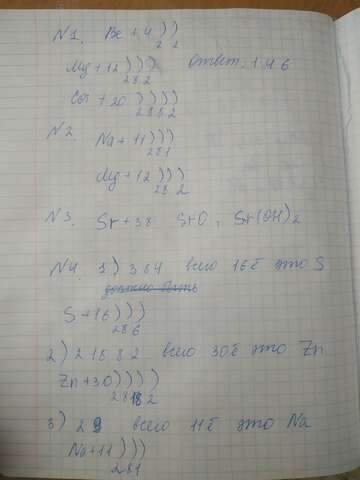 N1. Be +4))
2 2
Mg +12))) Ответ: 1 4 6
2 8 2
Ca +20))))
2 8 8 2
N2. Na +11)))
2 8 1
Mg +12)))
2 8 2
N3. Sr +38 SrO, Sr(OH)2
N4. 1) 3 8 4 всего 16ē это S
должно быть
S +16)))
2 8 6
2) 2 18 8 2 всего 30ē это Zn
Zn +30))))
2 8 18 2
3) 2 9 всего 11ē это Na
Na +11)))
2 8 1